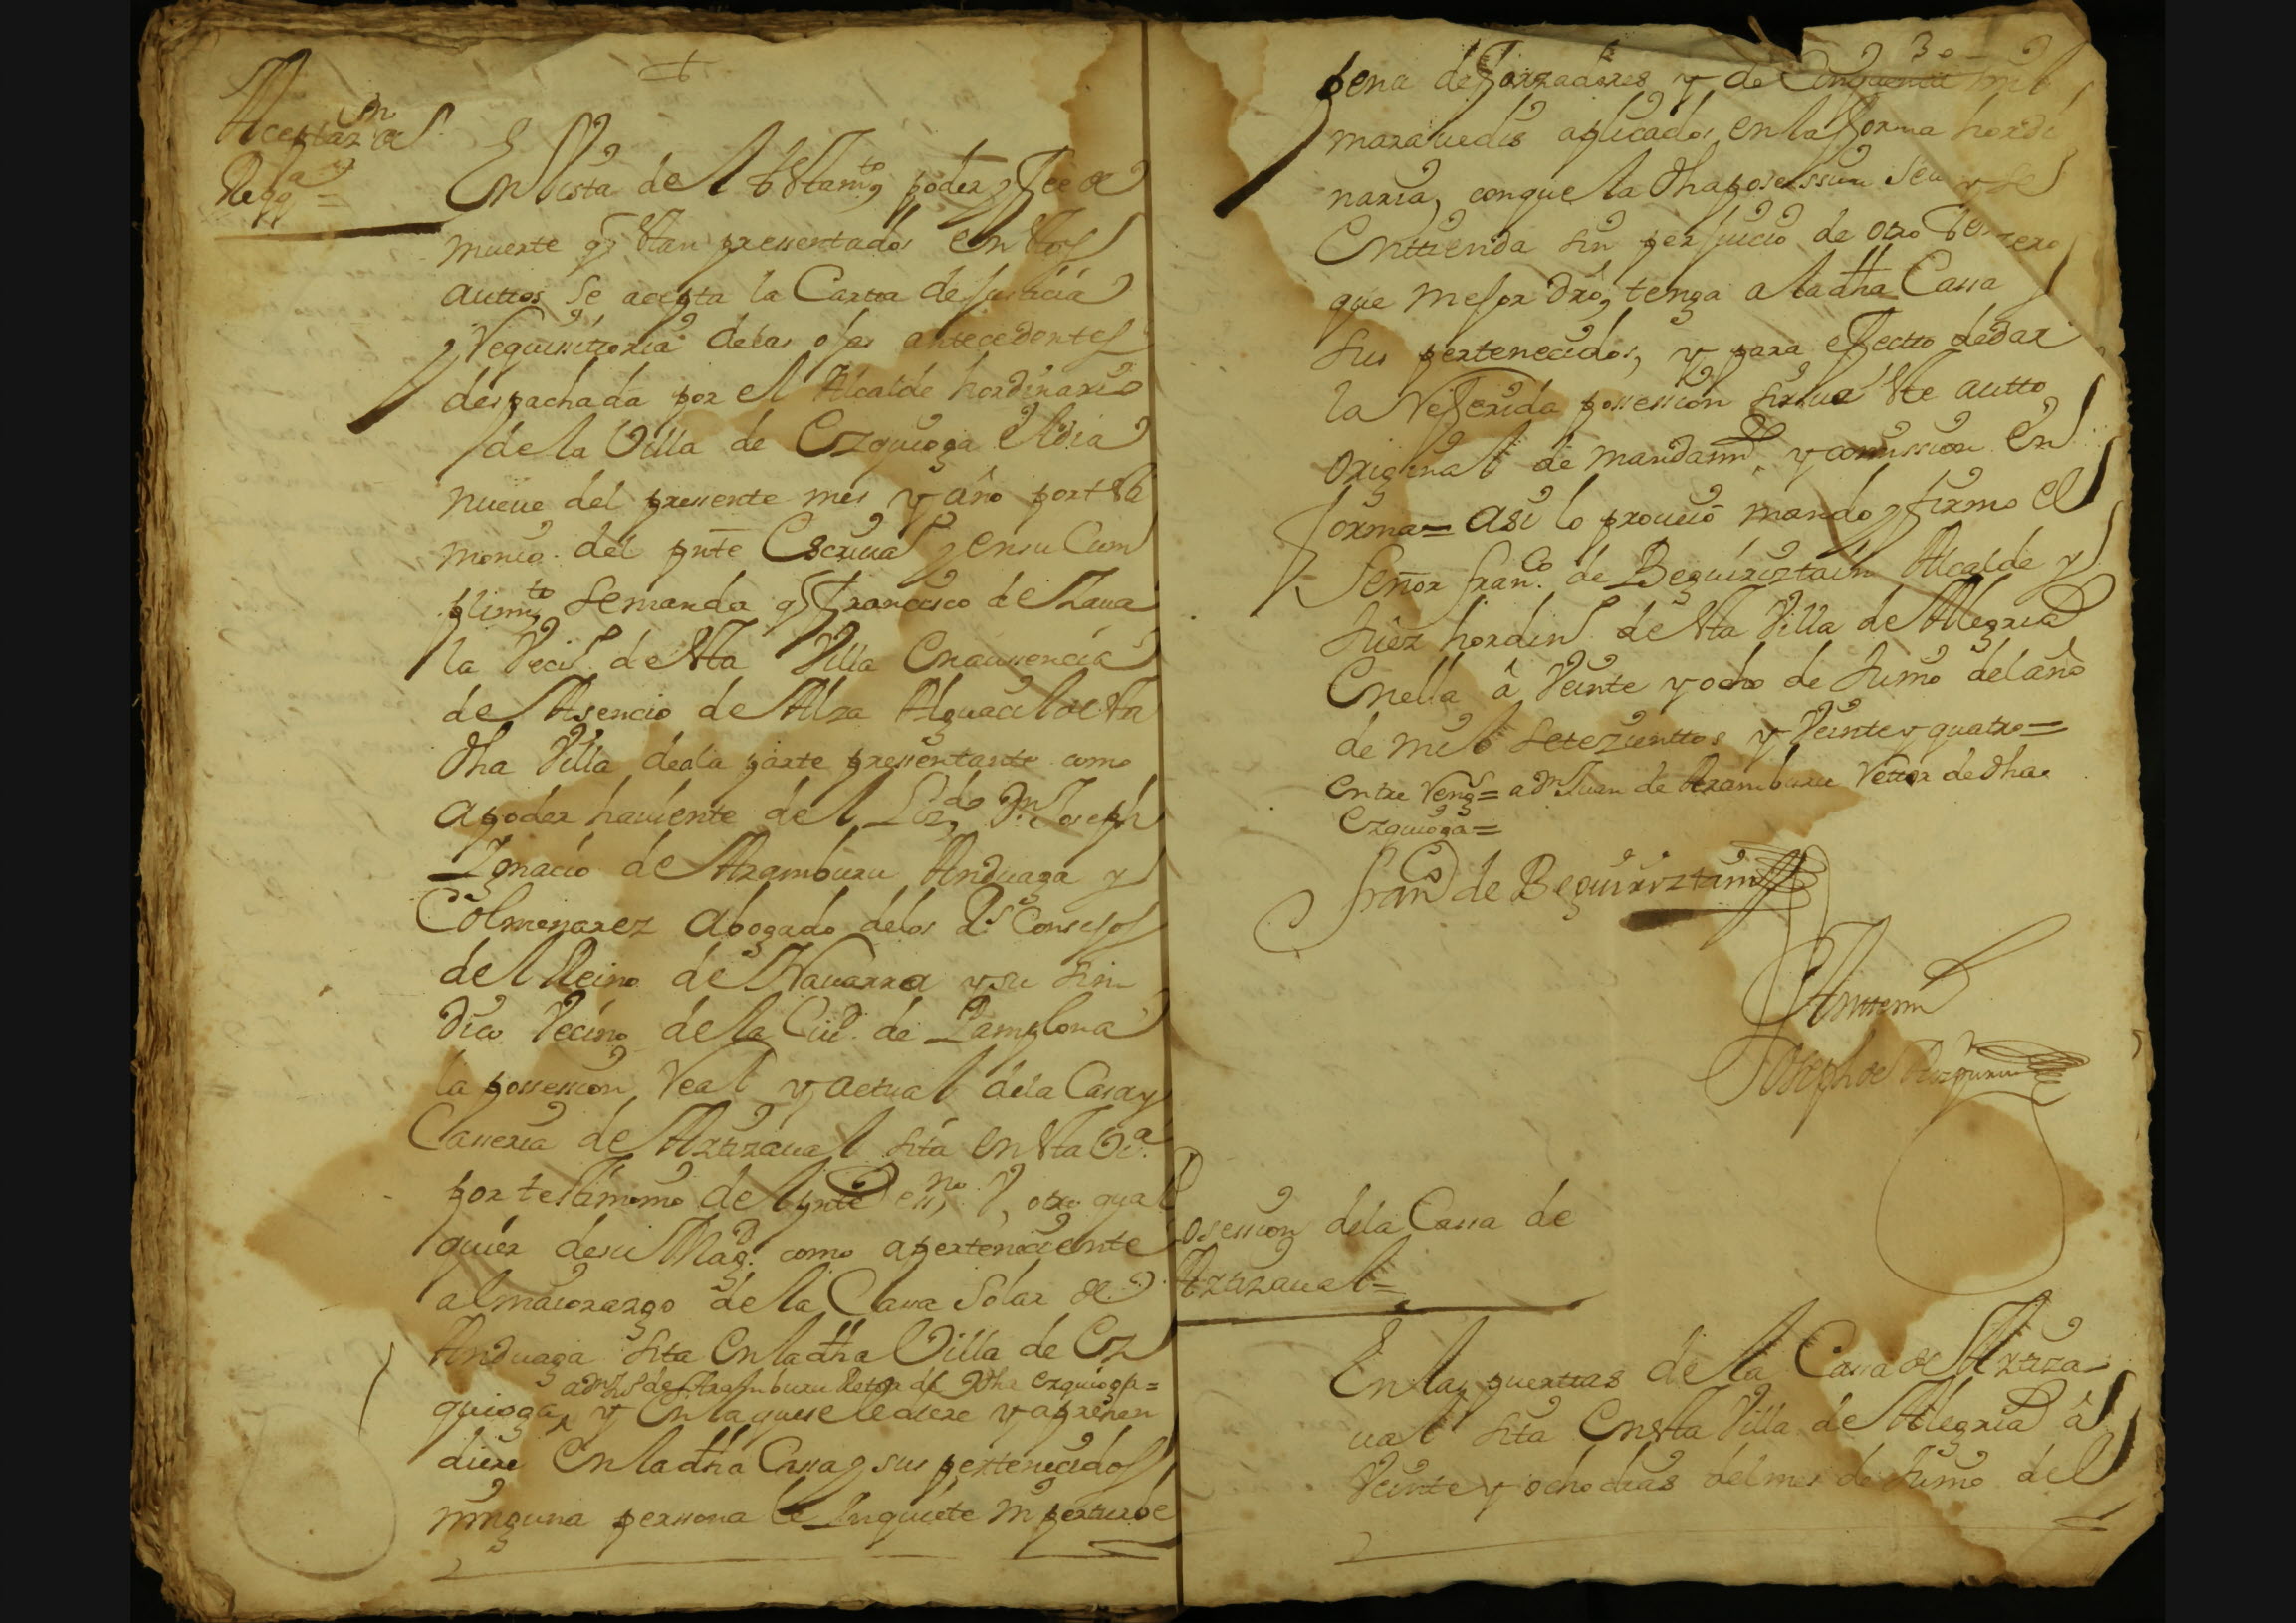 Aceptaz.on de
Reqq.a =
En Vista del testam.to poder, y fee de
muerte q estan pressentados en estos
auttos Se acepta la Carta de Justicia
y Requissitoria delas ojas antecedentes
despachada por el Alcalde hordinario
de la Villa de Ezquioga el dia
nueue del pressente mes y año por testi
monio del pnte Escriua.l y en su Cum
plim.to se manda q Francisco de Zaua
la Vecis. de esta Villa en aussencia
de Asencio de Alza Alguacil de esta
dha Villa de a la parte pressentante como
apoder hauiente del Liz.do D.n Joseph
Ygnacio de Aramburu Anduaga y
Colmenarez Abogado delos R.s Consejos
del Reino de Nauarra y su Sin
dico Vecino de la Ciud. de Pamplona
la possession, real y actual dela Casa y
Casseria de Arzazaual sita en esta V.a
por testimonio del pnte ess.no V, otro qual
quier de su Mag.d como aperteneciente
al maiorazgo de la Cassa Solar de
Anduaga sita en la dha Villa de Ez
a dn Jn de Aramburu Retor de dha ezquioga=
quioga, y en la que se le diere y aprehen
diere en la dha Cassa y sus pertenecidos
ninguna perssona le Inquiete ni perturbe
30
pena de forzadores y de Cinquenta mil
marauedis aplicados en la forma hordi
naria, con que la dha possession sea y se
Enttienda sin perjuicio de otro terzero
que mejor dro, tenga a la dha Cassa
sus pertenecidos, y para effectto de dar
la referida possession sirua este autto
original de mandam.to y comission en
forma= asi lo proueió mando, y firmo el
Señor fran.co de Beguiriztain Alcalde y
Juez hordin. de esta Villa de Alegria
En ella â Veinte y ocho de Junio del año
de mil setezienttos y Veinte y quatro=
entre Reng.s= a dn Juan de Aramburu Rettor de dha
Ezquioga=
fran.co de Beguiriztain
Anttemi
Joseph de Aizpuru
Posession dela Cassa de
Arzazaual=
En las puerttas de la Cassa de Arzaza
ual sita en esta Villa de Alegria â
Veinte y ocho dias del mes de Junio del